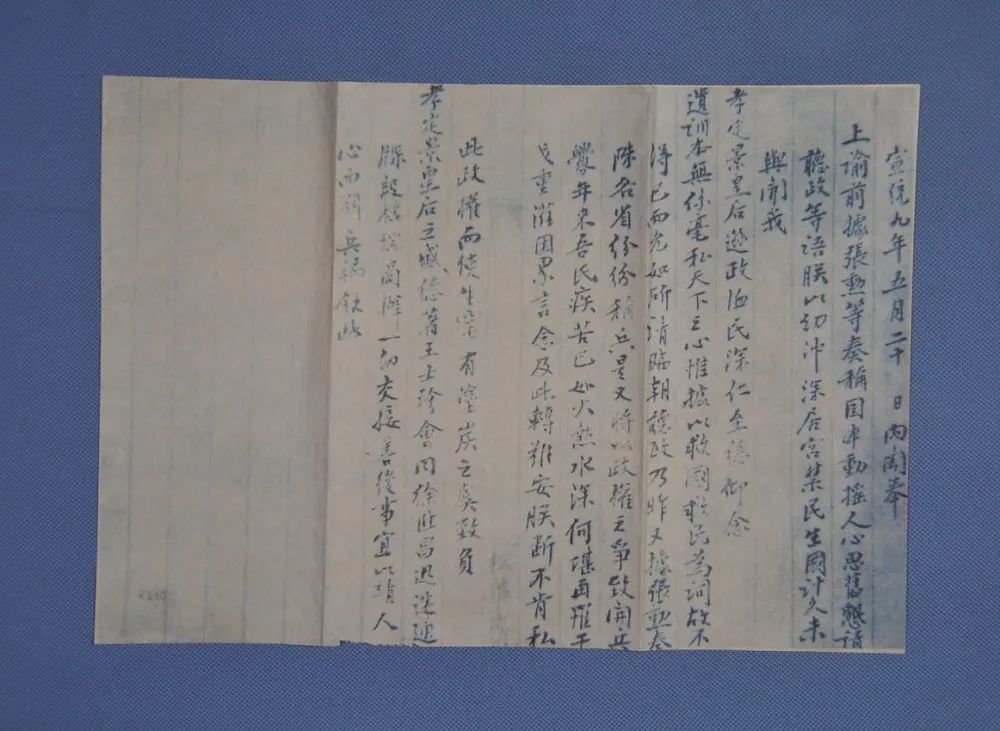 宣統九年五月二十日內閣奉
上諭前據張勳等奏稱國本動搖人心思舊懇請
聽政等語朕以幼沖深居宮禁民生國計久未
與聞我
孝定景皇后遜政恤民深仁至德仰念
遺訓本無絲毫私天下之心惟據以救國救民為詞故不
得已而允如所請臨朝聽政乃昨又據張勳奏
陳各省份份稱兵是又將以政權之爭致開兵
釁年來吾民疾苦已如火熱水深何堪再罹干
戈重滋困累言念及此轉難安朕斷不肯私
此政權而使生靈有塗炭之虞致負
孝定景皇后之盛德著王士珍會同徐世昌迅速通
牒段祺瑞商辦一切交接善後事宜以順人
心而弭兵禍欽此